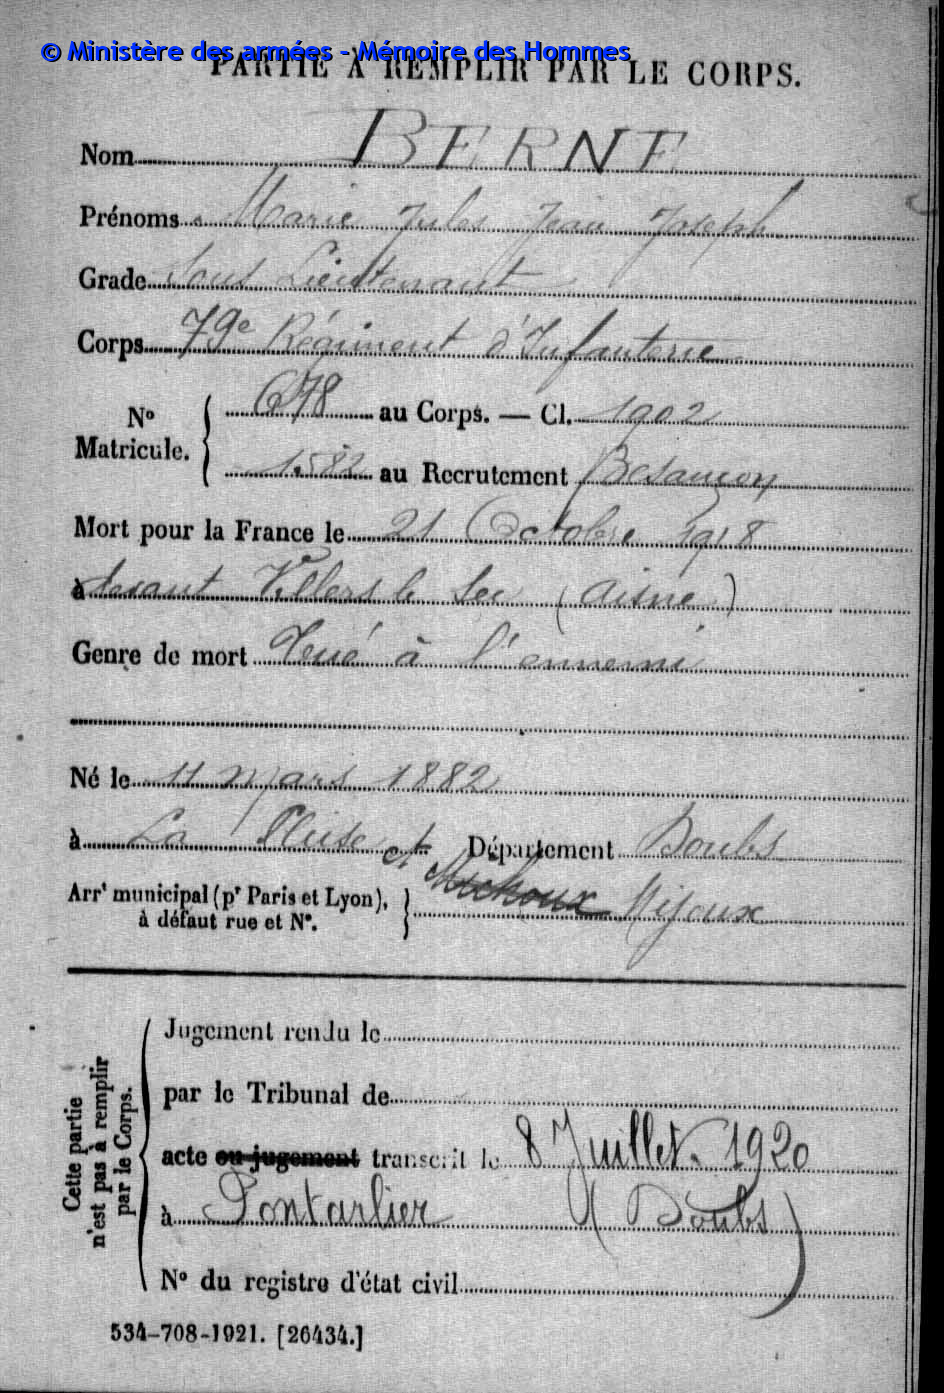 © Ministère des armées - Mémoire des Hommes
PARTIE À REMPLIR PAR LE CORPS.
Nom BERNE
Prénoms Marie Jules Jean Joseph
Grade Sous Lieutenant
Corps 79e Régiment d'Infanterie
Nº Matricule. { 678 au Corps. — Cl. 1902
1582 au Recrutement Besançon
Mort pour la France le 21 Octobre 1918
à devant Villers le Sec (Aisne)
Genre de mort Tué à l'ennemi
Né le 11 mars 1882
à La Cluse et Département Doubs
Arrt municipal (pr Paris et Lyon), à défaut rue et Nº. } Mijoux
Cette partie n'est pas à remplir par le Corps.
Jugement rendu le
par le Tribunal de
acte ou jugement transcrit le 8 Juillet 1920
à Pontarlier (Doubs)
Nº du registre d'état civil
534-708-1921. [26434.]